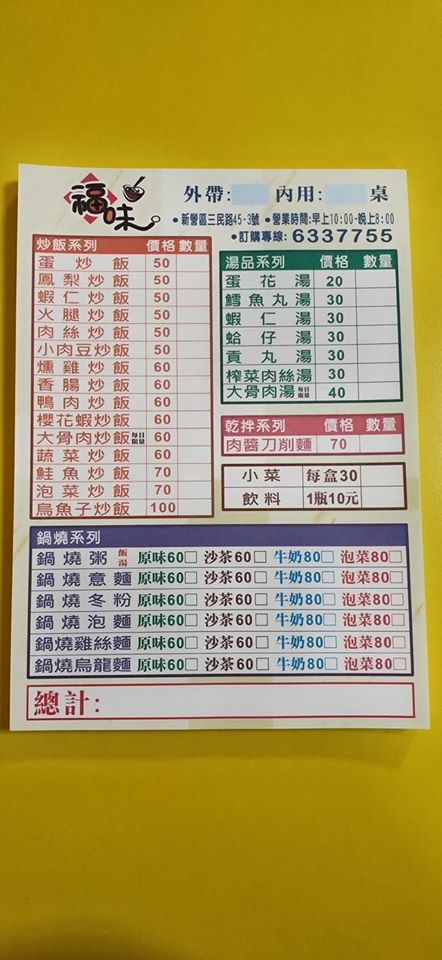 福味
外帶: 內用: 桌
•新營區三民路45-3號 •營業時間:早上10:00-晚上8:00
•訂購專線: 6337755
炒飯系列 價格 數量
蛋炒飯 50
鳳梨炒飯 50
蝦仁炒飯 50
火腿炒飯 50
肉絲炒飯 50
小肉豆炒飯 50
燻雞炒飯 60
香腸炒飯 60
鴨肉炒飯 60
櫻花蝦炒飯 60
大骨肉炒飯 每日限量 60
蔬菜炒飯 60
鮭魚炒飯 70
泡菜炒飯 70
烏魚子炒飯 100
湯品系列 價格 數量
蛋花湯 20
鱈魚丸湯 30
蝦仁湯 30
蛤仔湯 30
貢丸湯 30
榨菜肉絲湯 30
大骨肉湯 每日限量 40
乾拌系列 價格 數量
肉醬刀削麵 70
小菜 每盒30
飲料 1瓶10元
鍋燒系列
鍋燒粥 飯湯 原味60□ 沙茶60□ 牛奶80□ 泡菜80□
鍋燒意麵 原味60□ 沙茶60□ 牛奶80□ 泡菜80□
鍋燒冬粉 原味60□ 沙茶60□ 牛奶80□ 泡菜80□
鍋燒泡麵 原味60□ 沙茶60□ 牛奶80□ 泡菜80□
鍋燒雞絲麵 原味60□ 沙茶60□ 牛奶80□ 泡菜80□
鍋燒烏龍麵 原味60□ 沙茶60□ 牛奶80□ 泡菜80□
總計: